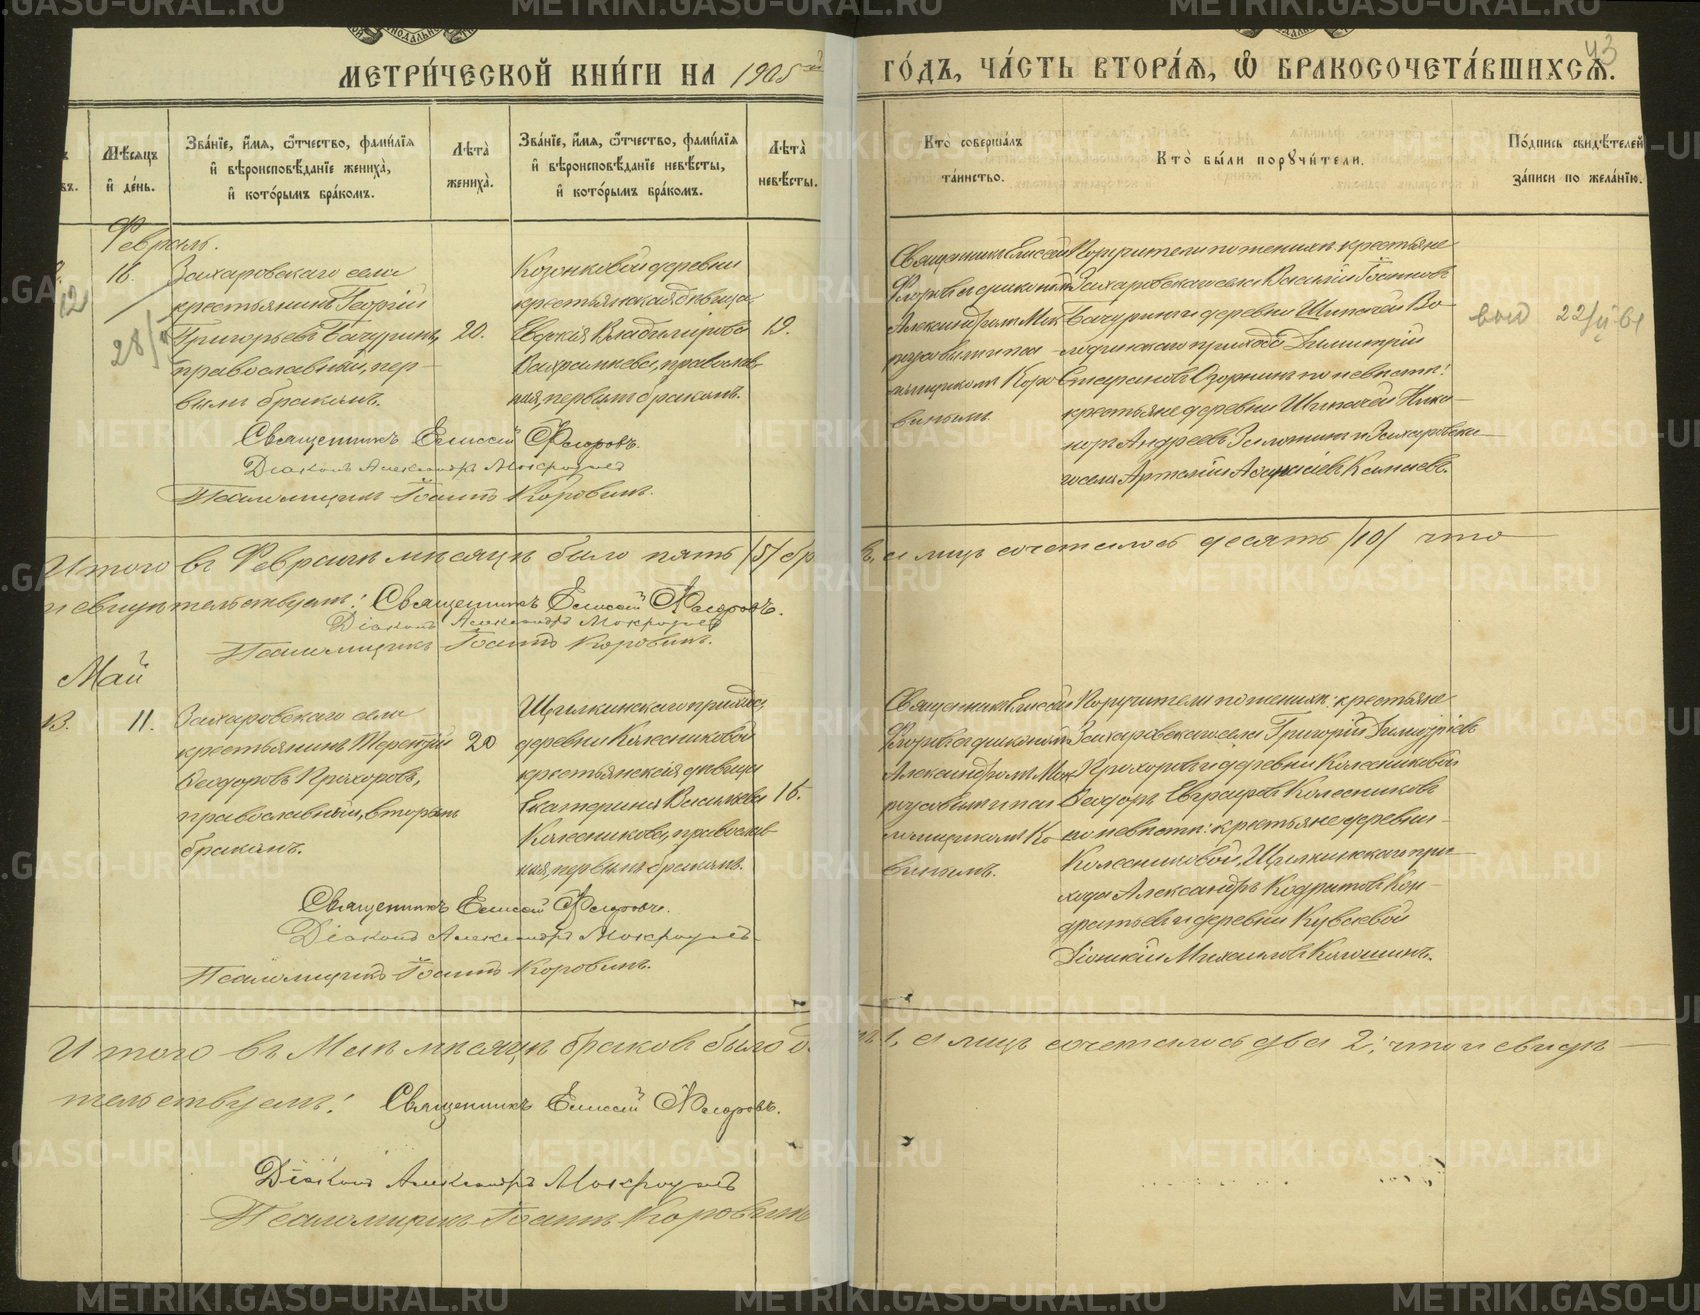 МЕТРИ́ЧЕСКОЙ КНИ́ГИ НА 1905 й
ГО́ДЪ, ЧА́СТЬ ВТОРА́Я, Ѡ БРАКОСОЧЕТА́ВШИХСЯ.
43
Мѣ́сяцъ и҆ де́нь.
Зва́нїе, и҆́мя, ѻ҆́тчество, фами́лїя
и҆ вѣроисповѣ́данїе жениха̀,
и҆ кото́рымъ бра́комъ.
Лѣта̀ жениха̀.
Зва́нїе, и҆́мя, ѻ҆́тчество, фами́лїя
и҆ вѣроисповѣ́данїе невѣ́сты,
и҆ кото́рымъ бра́комъ.
Лѣта̀ невѣ́сты.
Кто̀ соверша́лъ
та́инство.
Кто̀ бы́ли порꙋчи́тели.
По́дпись свидѣ́телей
за́писи по жела́нїю.
Февраль.
12
16.
28/
Захаровскаго села
крестьянинъ Георгій
Григорьевъ Бачуринъ,
православный, пер-
вымъ бракомъ.
20.
деревни
крестьянская дѣвица
Евдокія Владимірова
православ-
ная, первымъ бракомъ.
19.
Священникъ Елисей
Флоровъ съ діакономъ
Александромъ Мок-
роусовымъ и пса-
ломщикомъ Коро-
винымъ.
Поручители по женихѣ: крестьяне
Захаровскаго села Василій Іоанновъ
Бачуринъ и деревни Шипачёй Во-
лодинскаго прихода Димитрій
по невѣстѣ:
крестьяне деревни Шипачёй Ника-
норъ Андреевъ и Захаровска-
го села Артемій
22/II 61
Священникъ Елисей Флоровъ.
Діаконъ Александръ Мокроусовъ
Псаломщикъ Іоаннъ Коровинъ.
Итого въ Февралѣ мѣсяцѣ было пять /5/ бр
ъ, а лицъ сочеталось десять /10/ что
и свидѣтельствуемъ: Священникъ Елисей Флоровъ.
Діаконъ Александръ Мокроусовъ
Псаломщикъ Іоаннъ Коровинъ.
Май
13.
11.
Захаровскаго села
крестьянинъ Терентій
Ѳеодоровъ Прохоровъ,
православный, вторымъ
бракомъ.
20
Щилкинскаго прихода,
деревни Колесниковой
крестьянская дѣвица
Екатерина Васильева
Колесникова, православ-
ная, первымъ бракомъ.
16.
Священникъ Елисей
Флоровъ съ діакономъ
Александромъ Мок-
роусовымъ и пса-
ломщикомъ Ко-
винымъ.
Поручители по женихѣ: крестьяне
Захаровскаго села Григорій Димитріевъ
Прохоровъ и деревни Колесниковой
Ѳеодоръ Колесниковъ
по невѣстѣ: крестьяне деревни
Колесниковой, Щилкинскаго при-
хода Александръ Кодратовъ Кон-
дратьевъ и деревни
Діонисій Михаиловъ
Священникъ Елисей Флоровъ.
Діаконъ Александръ Мокроусовъ
Псаломщикъ Іоаннъ Коровинъ.
Итого въ Маѣ мѣсяцѣ браковъ было
1, а лицъ сочеталось два 2; что и свидѣ-
тельствуемъ: Священникъ Елисей Флоровъ.
Діаконъ Александръ Мокроусовъ
Псаломщикъ Іоаннъ Коровинъ
METRIKI.GASO-URAL.RU